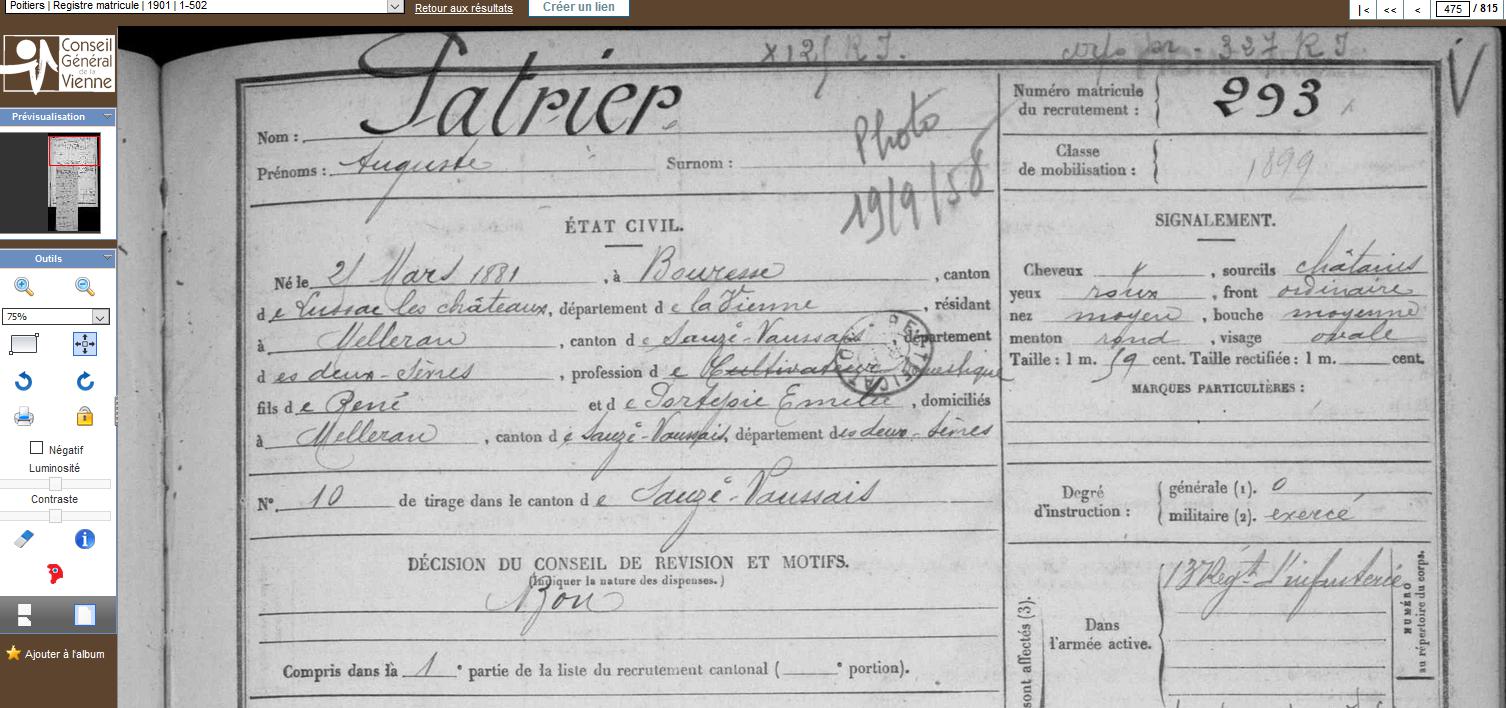 Poitiers | Registre matricule | 1901 | 1-502
Retour aux résultats
Créer un lien
|<
<<
<
475 / 815
Conseil
Général
de la
Vienne
Prévisualisation
Outils
75%
Négatif
Luminosité
Contraste
Ajouter à l'album
327 R I.
V
Nom : Patrier
Prénoms : Auguste Surnom :
Photo
19/9/58
Numéro matricule
du recrutement : 293
Classe
de mobilisation : 1899
ÉTAT CIVIL.
Né le 21 Mars 1881, à Bouresse, canton
de Lussac les châteaux, département de la Vienne, résidant
à Melleran, canton de Sauzé-Vaussais, département
des deux-Sèvres, profession de Cultivateur domestique
fils de René et de Emélie, domiciliés
à Melleran, canton de Sauzé-Vaussais, département des deux-Sèvres
N° 10 de tirage dans le canton de Sauzé-Vaussais
DÉCISION DU CONSEIL DE REVISION ET MOTIFS.
(Indiquer la nature des dispenses.)
Bon
Compris dans la 1e partie de la liste du recrutement cantonal ( e portion).
SIGNALEMENT.
Cheveux , sourcils châtains
yeux roux, front ordinaire
nez moyen, bouche moyenne
menton rond, visage ovale
Taille : 1 m. 59 cent. Taille rectifiée : 1 m. cent.
MARQUES PARTICULIÈRES :
Degré
d'instruction :
générale (1). 0
militaire (2). exercé
sont affectés (3).
Dans
l'armée active.
Régt d'infanterie
NUMÉRO
au répertoire du corps.